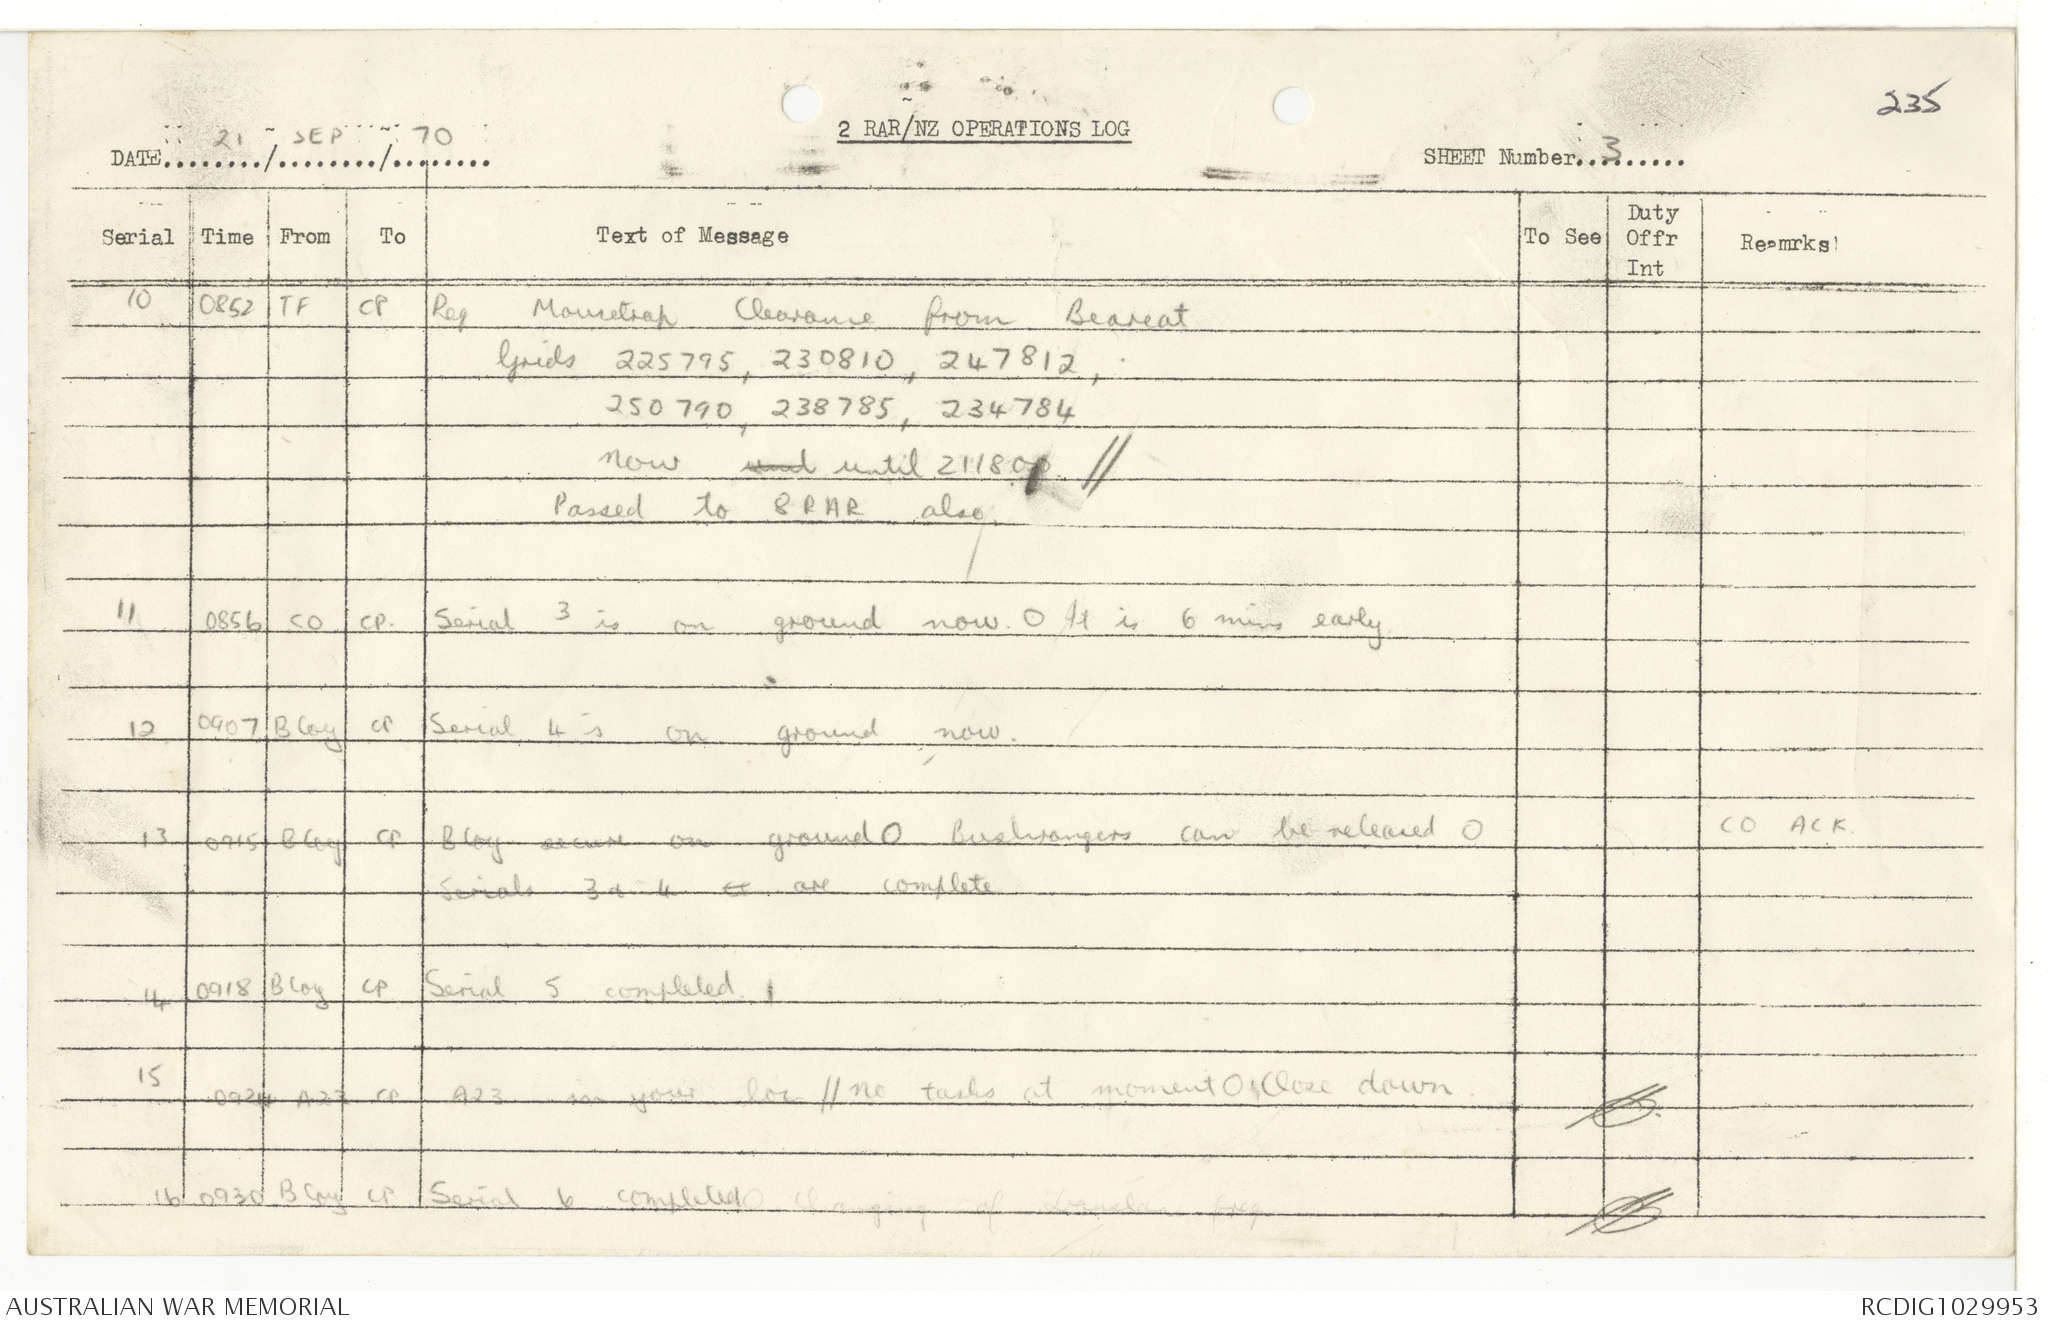 235
2 RAR/NZ OPERATIONS LOG
DATE 21 / SEP / 70
SHEET Number 3
Serial Time From To Text of Message To See Duty Offr Int Reamrks
10 0852 TF CP Req Mousetrap Clearance from Bearcat
Grids 225795, 230810, 247812,
250790, 238785, 234784
now until 211800 //
Passed to 8RAR also.
11 0856 CO CP. Serial 3 is on ground now. O It is 6 mins early.
12 0907 B Coy CP Serial 4 is on ground now.
13 0915 B Coy CP B Coy secure on ground O Bushrangers can be released O CO ACK.
Serials 3 & 4 are complete
14 0918 B Coy CP Serial 5 completed.
15 0924 A23 CP A23 in your loc // no tasks at moment O Close down.
16 0930 B Coy CP Serial 6 completed O Changing of freq
AUSTRALIAN WAR MEMORIAL
RCDIG1029953